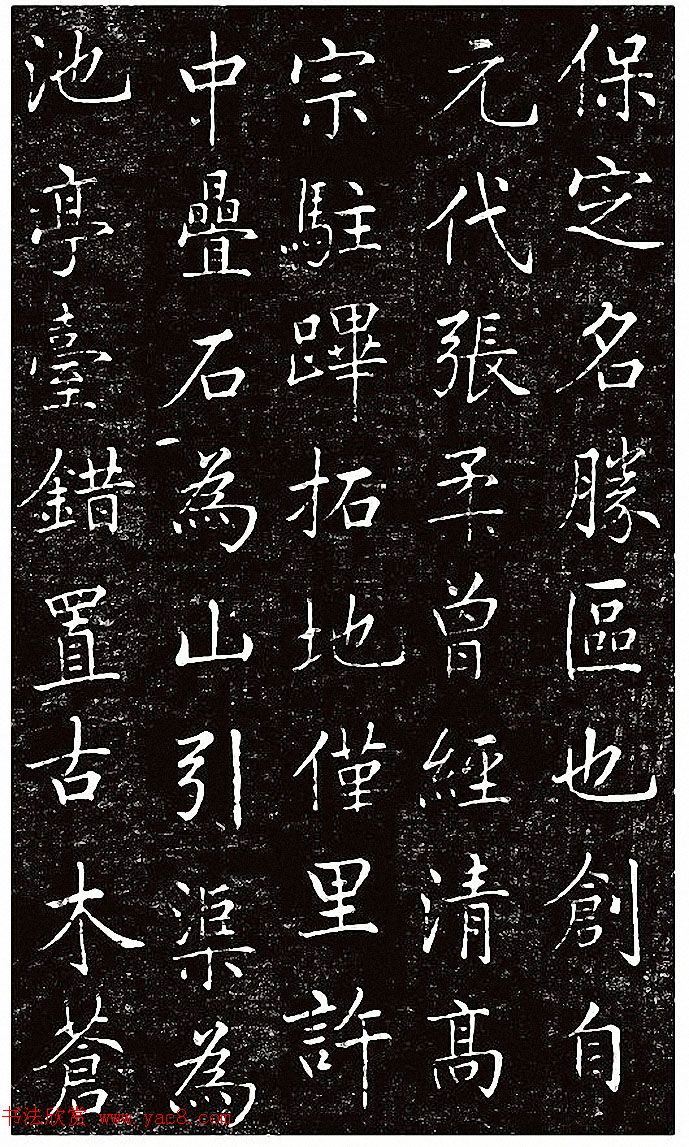 保定名勝區也創自
元代張柔曾經清高
宗駐蹕拓地僅里許
中疊石為山引渠為
池亭臺錯置古木蒼
书法欣赏 www.yac8.com